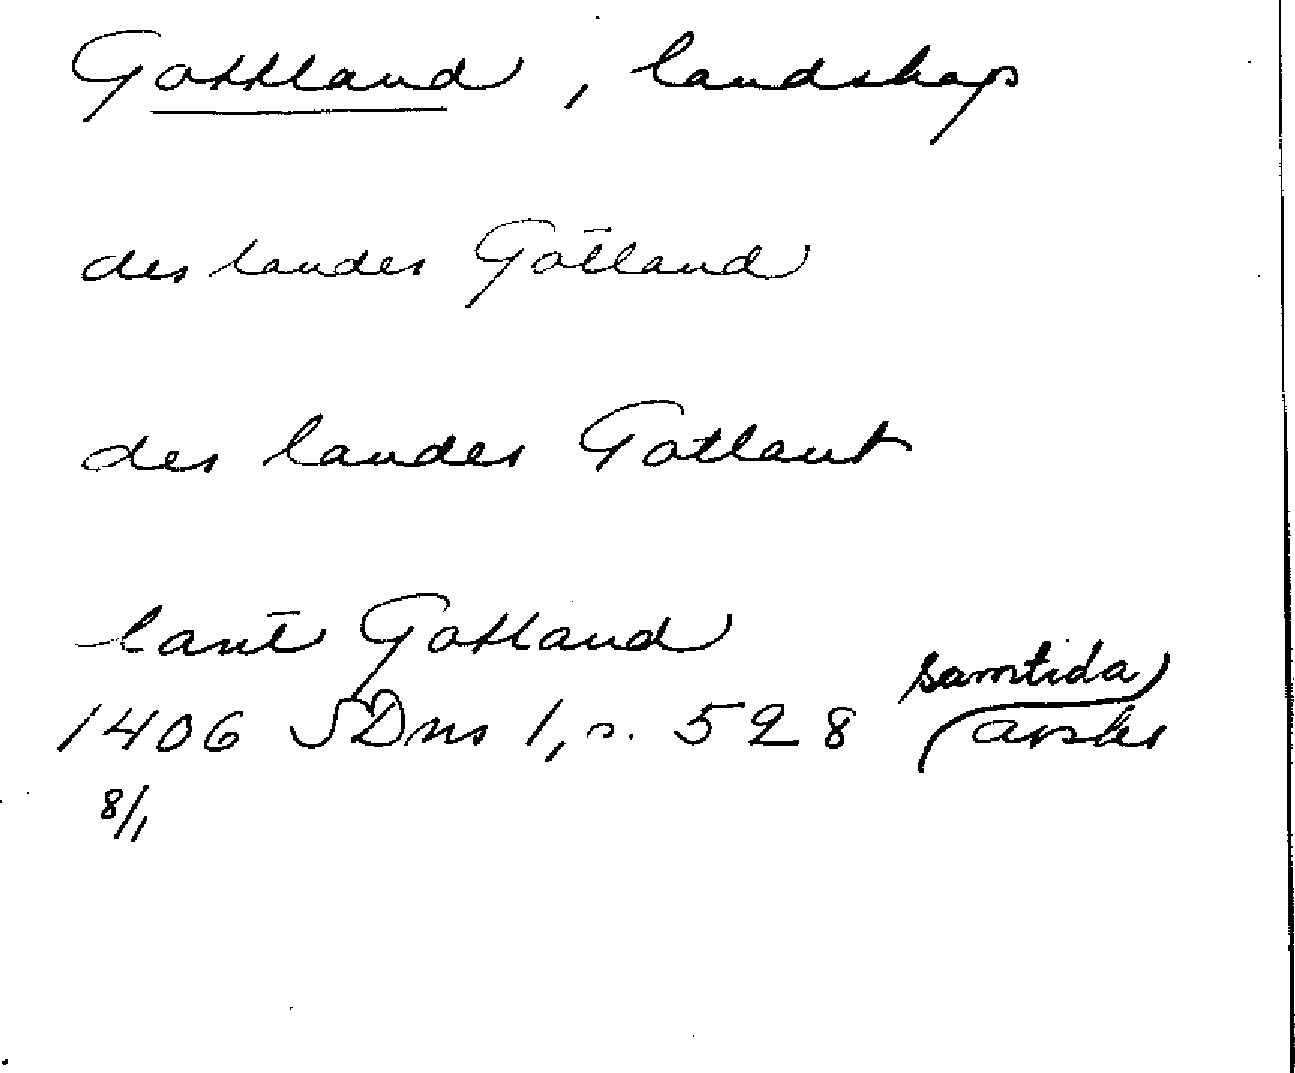 Gottland, landskap
des landes Gotland
des landes Gotlant
lant Gotland
1406 SDns 1, s. 528 samtida
avskr
8/1